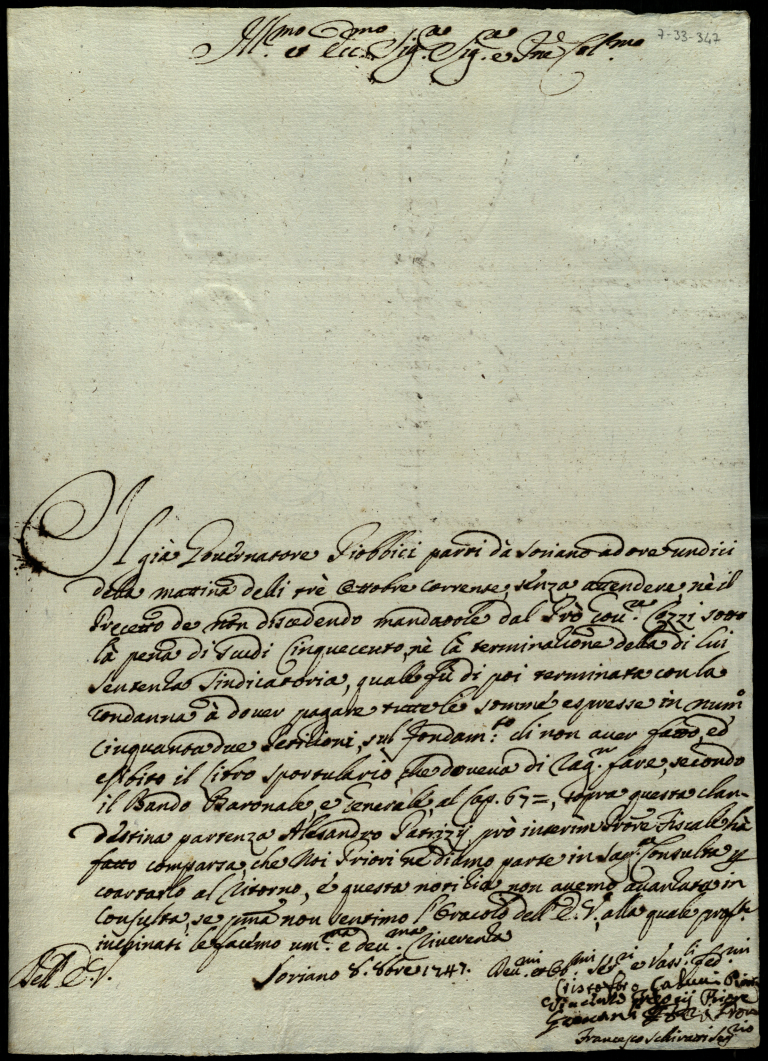 7-33-347
Ill.mo et Ecc.mo Sig.re Sig.re e Pne Col.mo
Il già Governatore Fiobbici partì da Soriano ad ore undici
della mattina delli trè Ottobre corrente, senza attendere, nè il
Precetto de non discedendo mandatole dal Prò Gov.re Cozzi sotto
là pena di Scudi Cinquecento, nè là terminazione della di lui
Sentenza Sindicatoria, quale fù di poi terminata con la
Condanna à dover pagare tutte le somme espresse in num.o
cinquanta due Petizioni, sul fondam.to di non aver fatto, ed
esibito il Libro sportulario, che doveva di fare, secondo
il Bando Baronale, e Generale, al Cap. 67=, sopra questa clan-
destina partenza Alesandro Patrizij prò interim Prore Fiscale hà
fatto comparsa, che Noi Priori ne diamo parte in Consulta p
coartarlo al ritorno, e questa notizia non avemo avanzata in
Consulta, se pma non sentimo l'Oracolo dell' E. V., alla quale prof.te
inchinati le facimo um.ma e dev.ma Riverenza
Dell' E. V.
Soriano 8. 8bre 1747.
Dev.mi et Ob.mi Ser.i e Vass.li fed.mi
Cristofaro Priore
Priore
Giovanni
Francesco Schivani Seg.rio